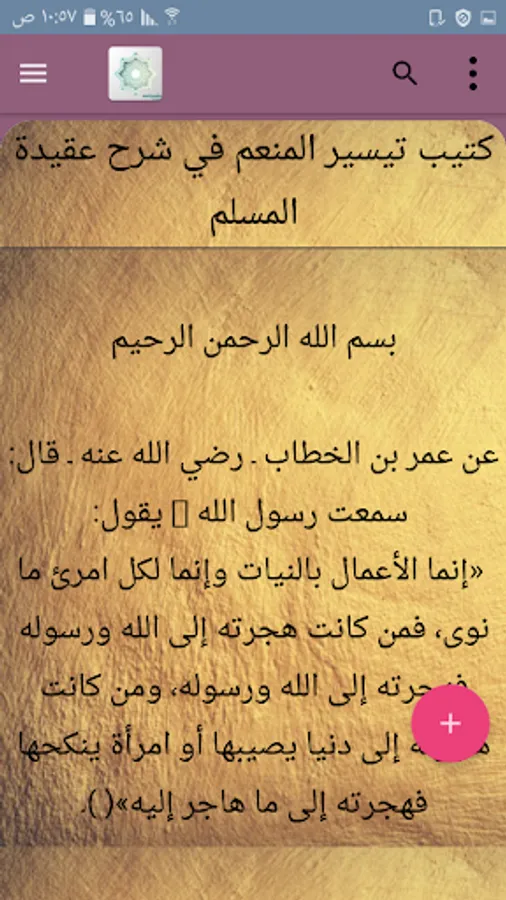 ١٠:٥٧ ص
%٦٥
كتيب تيسير المنعم في شرح عقيدة
المسلم
بسم الله الرحمن الرحيم
عن عمر بن الخطاب ـ رضي الله عنه ـ قال:
سمعت رسول الله يقول:
«إنما الأعمال بالنيات وإنما لكل امرئ ما
نوى، فمن كانت هجرته إلى الله ورسوله
إلى الله ورسوله، ومن كانت
إلى دنيا يصيبها أو امرأة ينكحها
فهجرته إلى ما هاجر إليه»( ).